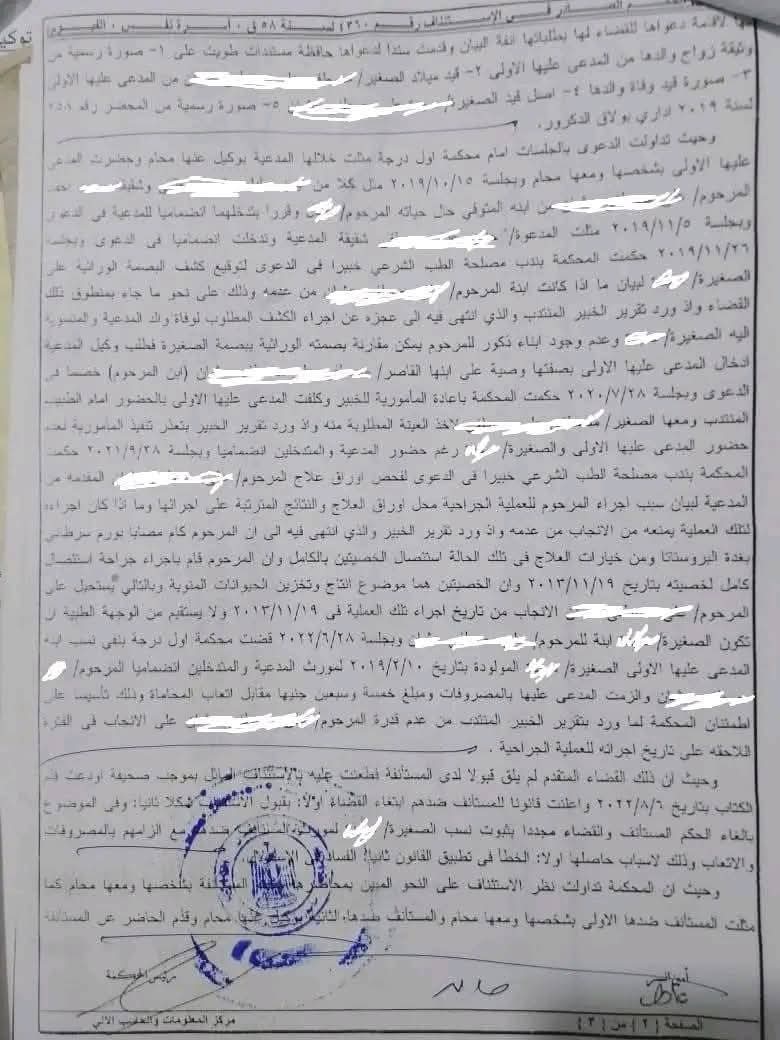 الصادر في الإستئناف رقم ٤٣٦٠ لسنة ٥٨ ق ٠ أسرة نفس ٠ الفيوم
توكيل
منها لاقامة دعواها للقضاء لها بطلباتها انفة البيان وقدمت سندا لدعواها حافظة مستندات طويت على ١- صورة رسمية من
وثيقة زواج والدها من المدعى عليها الاولى ٢- قيد ميلاد الصغير/ من المدعى عليها الاولى
٣- صورة قيد وفاة والدها ٤- اصل قيد الصغيرة/ ٥- صورة رسمية من المحضر رقم ٢٥٨
لسنة ٢٠١٩ اداري بولاق الدكرور.
وحيث تداولت الدعوى بالجلسات امام محكمة اول درجة مثلت خلالها المدعية بوكيل عنها محام وحضرت المدعى
عليها الاولى بشخصها ومعها محام وبجلسة ٢٠١٩/١٠/١٥ مثل كلا من وشقيقه احمد
المرحوم/ من ابنه المتوفي حال حياته المرحوم/ وقررا بتدخلهما انضماميا للمدعية فى الدعوى
وبجلسة ٢٠١٩/١١/٥ مثلت المدعوة/ شقيقة المدعية وتدخلت انضماميا فى الدعوى وبجلسة
٢٠١٩/١١/٢٦ حكمت المحكمة بندب مصلحة الطب الشرعي خبيرا فى الدعوى لتوقيع كشف البصمة الوراثية على
الصغيرة/ لبيان ما اذا كانت ابنة المرحوم/ من عدمه وذلك على نحو ما جاء بمنطوق ذلك
القضاء واذ ورد تقرير الخبير المنتدب والذي انتهى فيه الى عجزه عن اجراء الكشف المطلوب لوفاة والد المدعية والمنسوبة
اليه الصغيرة/ وعدم وجود ابناء ذكور للمرحوم يمكن مقارنة بصمته الوراثية ببصمة الصغيرة فطلب وكيل المدعية
ادخال المدعى عليها الاولى بصفتها وصية على ابنها القاصر/ ان (ابن المرحوم) خصما فى
الدعوى وبجلسة ٢٠٢٠/٧/٢٨ حكمت المحكمة باعادة المأمورية للخبير وكلفت المدعى عليها الاولى بالحضور امام الطبيب
المنتدب ومعها الصغير/ لاخذ العينة المطلوبة منه واذ ورد تقرير الخبير بتعذر تنفيذ المأمورية لعدم
حضور المدعى عليها الاولى والصغيرة/ رغم حضور المدعية والمتدخلين انضماميا وبجلسة ٢٠٢١/٩/٢٨ حكمت
المحكمة بندب مصلحة الطب الشرعي خبيرا فى الدعوى لفحص اوراق علاج المرحوم/ المقدمه من
المدعية لبيان سبب اجراء المرحوم للعملية الجراحية محل اوراق العلاج والنتائج المترتبة على اجرائها وما اذا كان اجراءه
لتلك العملية يمنعه من الانجاب من عدمه واذ ورد تقرير الخبير والذي انتهى فيه الى ان المرحوم كام مصابا بورم سرطاني
بغدة البروستاتا ومن خيارات العلاج فى تلك الحالة استئصال الخصيتين بالكامل وان المرحوم قام باجراء جراحة استئصال
كامل لخصيته بتاريخ ٢٠١٣/١١/١٩ وان الخصيتين هما موضوع انتاج وتخزين الحيوانات المنوية وبالتالي يستحيل على
المرحوم/ الانجاب من تاريخ اجراء تلك العملية فى ٢٠١٣/١١/١٩ ولا يستقيم من الوجهة الطبية ان
تكون الصغيرة/ ابنة للمرحوم/ وبجلسة ٢٠٢٢/٦/٢٨ قضت محكمة اول درجة بنفي نسب ابنة
المدعى عليها الاولى الصغيرة/ المولودة بتاريخ ٢٠١٩/٢/١٠ لمورث المدعية والمتدخلين انضماميا المرحوم/
ان والزمت المدعى عليها بالمصروفات ومبلغ خمسة وسبعين جنيها مقابل اتعاب المحاماة وذلك تأسيسا على
اطمئنان المحكمة لما ورد بتقرير الخبير المنتدب من عدم قدرة المرحوم/ على الانجاب فى الفترة
اللاحقه على تاريخ اجرائه للعملية الجراحية .
وحيث ان ذلك القضاء المتقدم لم يلق قبولا لدى المستأنفة فطعنت عليه بالاستئناف الماثل بموجب صحيفة اودعت قلم
الكتاب بتاريخ ٢٠٢٢/٨/٦ واعلنت قانونا للمستأنف ضدهم ابتغاء القضاء اولا: بقبول الاستئناف شكلا ثانيا: وفى الموضوع
بالغاء الحكم المستأنف والقضاء مجددا بثبوت نسب الصغيرة/ لمورث المستأنف ضدهم مع الزامهم بالمصروفات
والاتعاب وذلك لاسباب حاصلها اولا: الخطأ فى تطبيق القانون ثانيا: الفساد فى الاستدلال.
وحيث ان المحكمة تداولت نظر الاستئناف على النحو المبين بمحاضرها المستأنفة بشخصها ومعها محام كما
مثلت المستأنف ضدها الاولى بشخصها ومعها محام والمستأنف ضدها الثانية بوكيل عنها محام وقدم الحاضر عن المستأنفة
أمين السر
رئيس المحكمة
الصفحة [٢] من [٣]
مركز المعلومات والحاسب الآلي